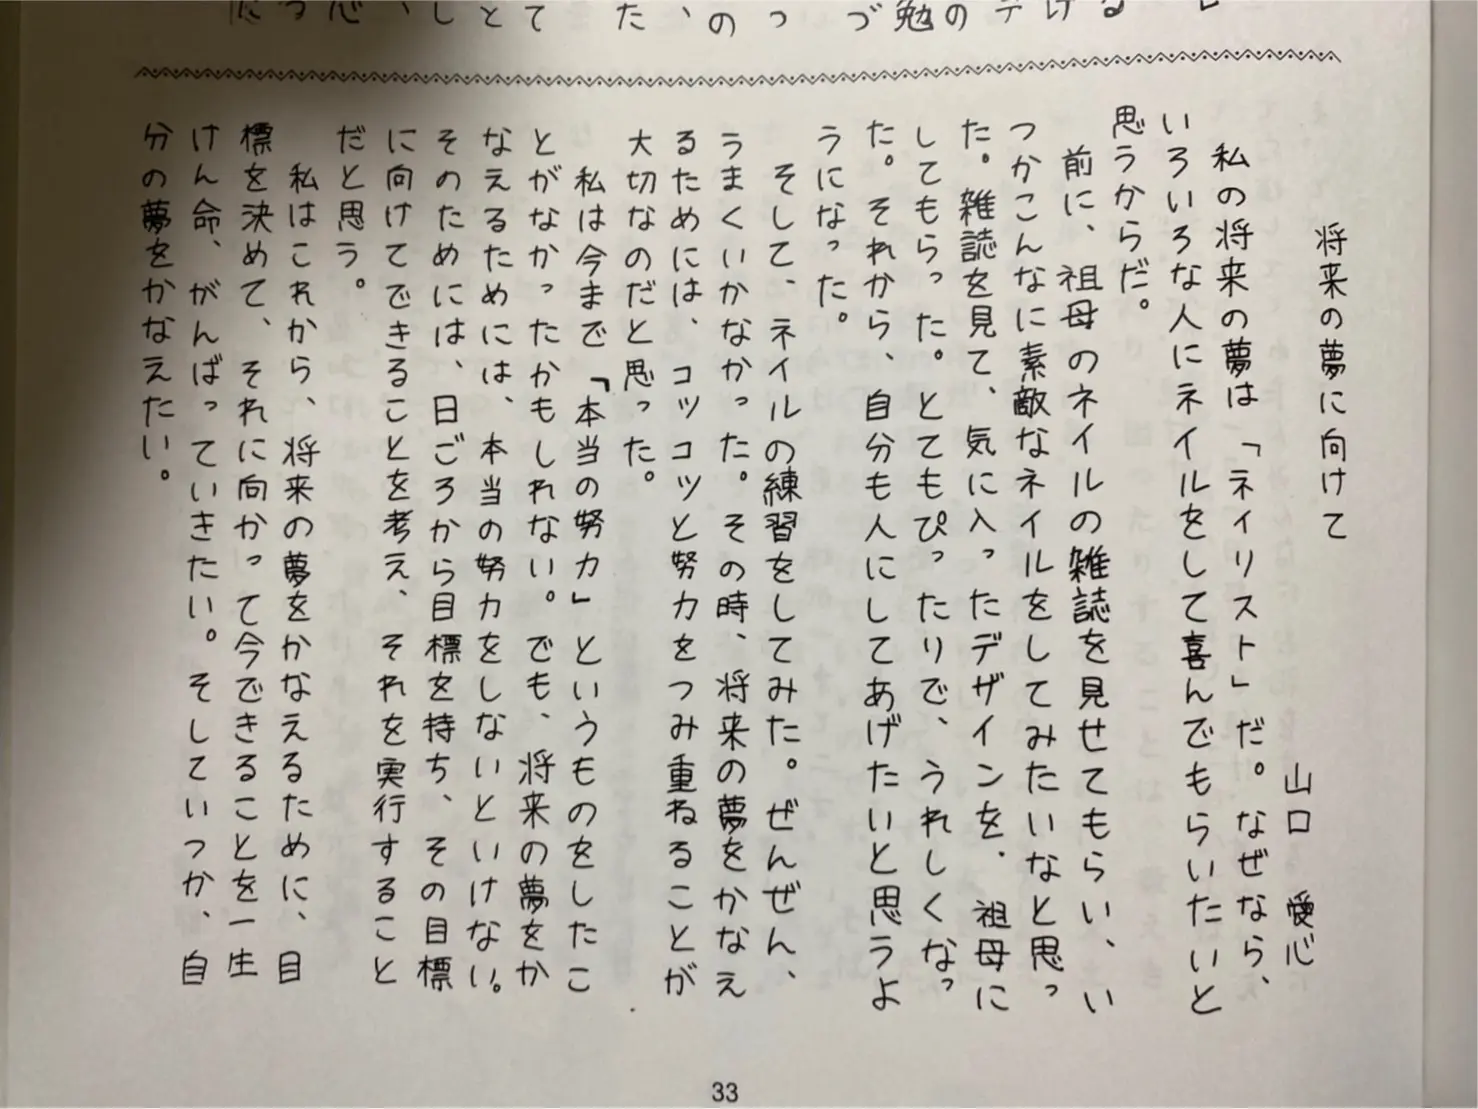 将来の夢に向けて
山口 愛心
私の将来の夢は「ネイリスト」だ。なぜなら、
いろいろな人にネイルをして喜んでもらいたいと
思うからだ。
前に、祖母のネイルの雑誌を見せてもらい、い
つかこんなに素敵なネイルをしてみたいなと思っ
た。雑誌を見て、気に入ったデザインを、祖母に
してもらった。とてもぴったりで、うれしくなっ
た。それから、自分も人にしてあげたいと思うよ
うになった。
そして、ネイルの練習をしてみた。ぜんぜん、
うまくいかなかった。その時、将来の夢をかなえ
るためには、コツコツと努力をつみ重ねることが
大切なのだと思った。
私は今まで「本当の努力」というものをしたこ
とがなかったかもしれない。でも、将来の夢をか
なえるためには、本当の努力をしないといけない。
そのためには、日ごろから目標を持ち、その目標
に向けてできることを考え、それを実行すること
だと思う。
私はこれから、将来の夢をかなえるために、目
標を決めて、それに向かって今できることを一生
けん命、がんばっていきたい。そしていつか、自
分の夢をかなえたい。
33